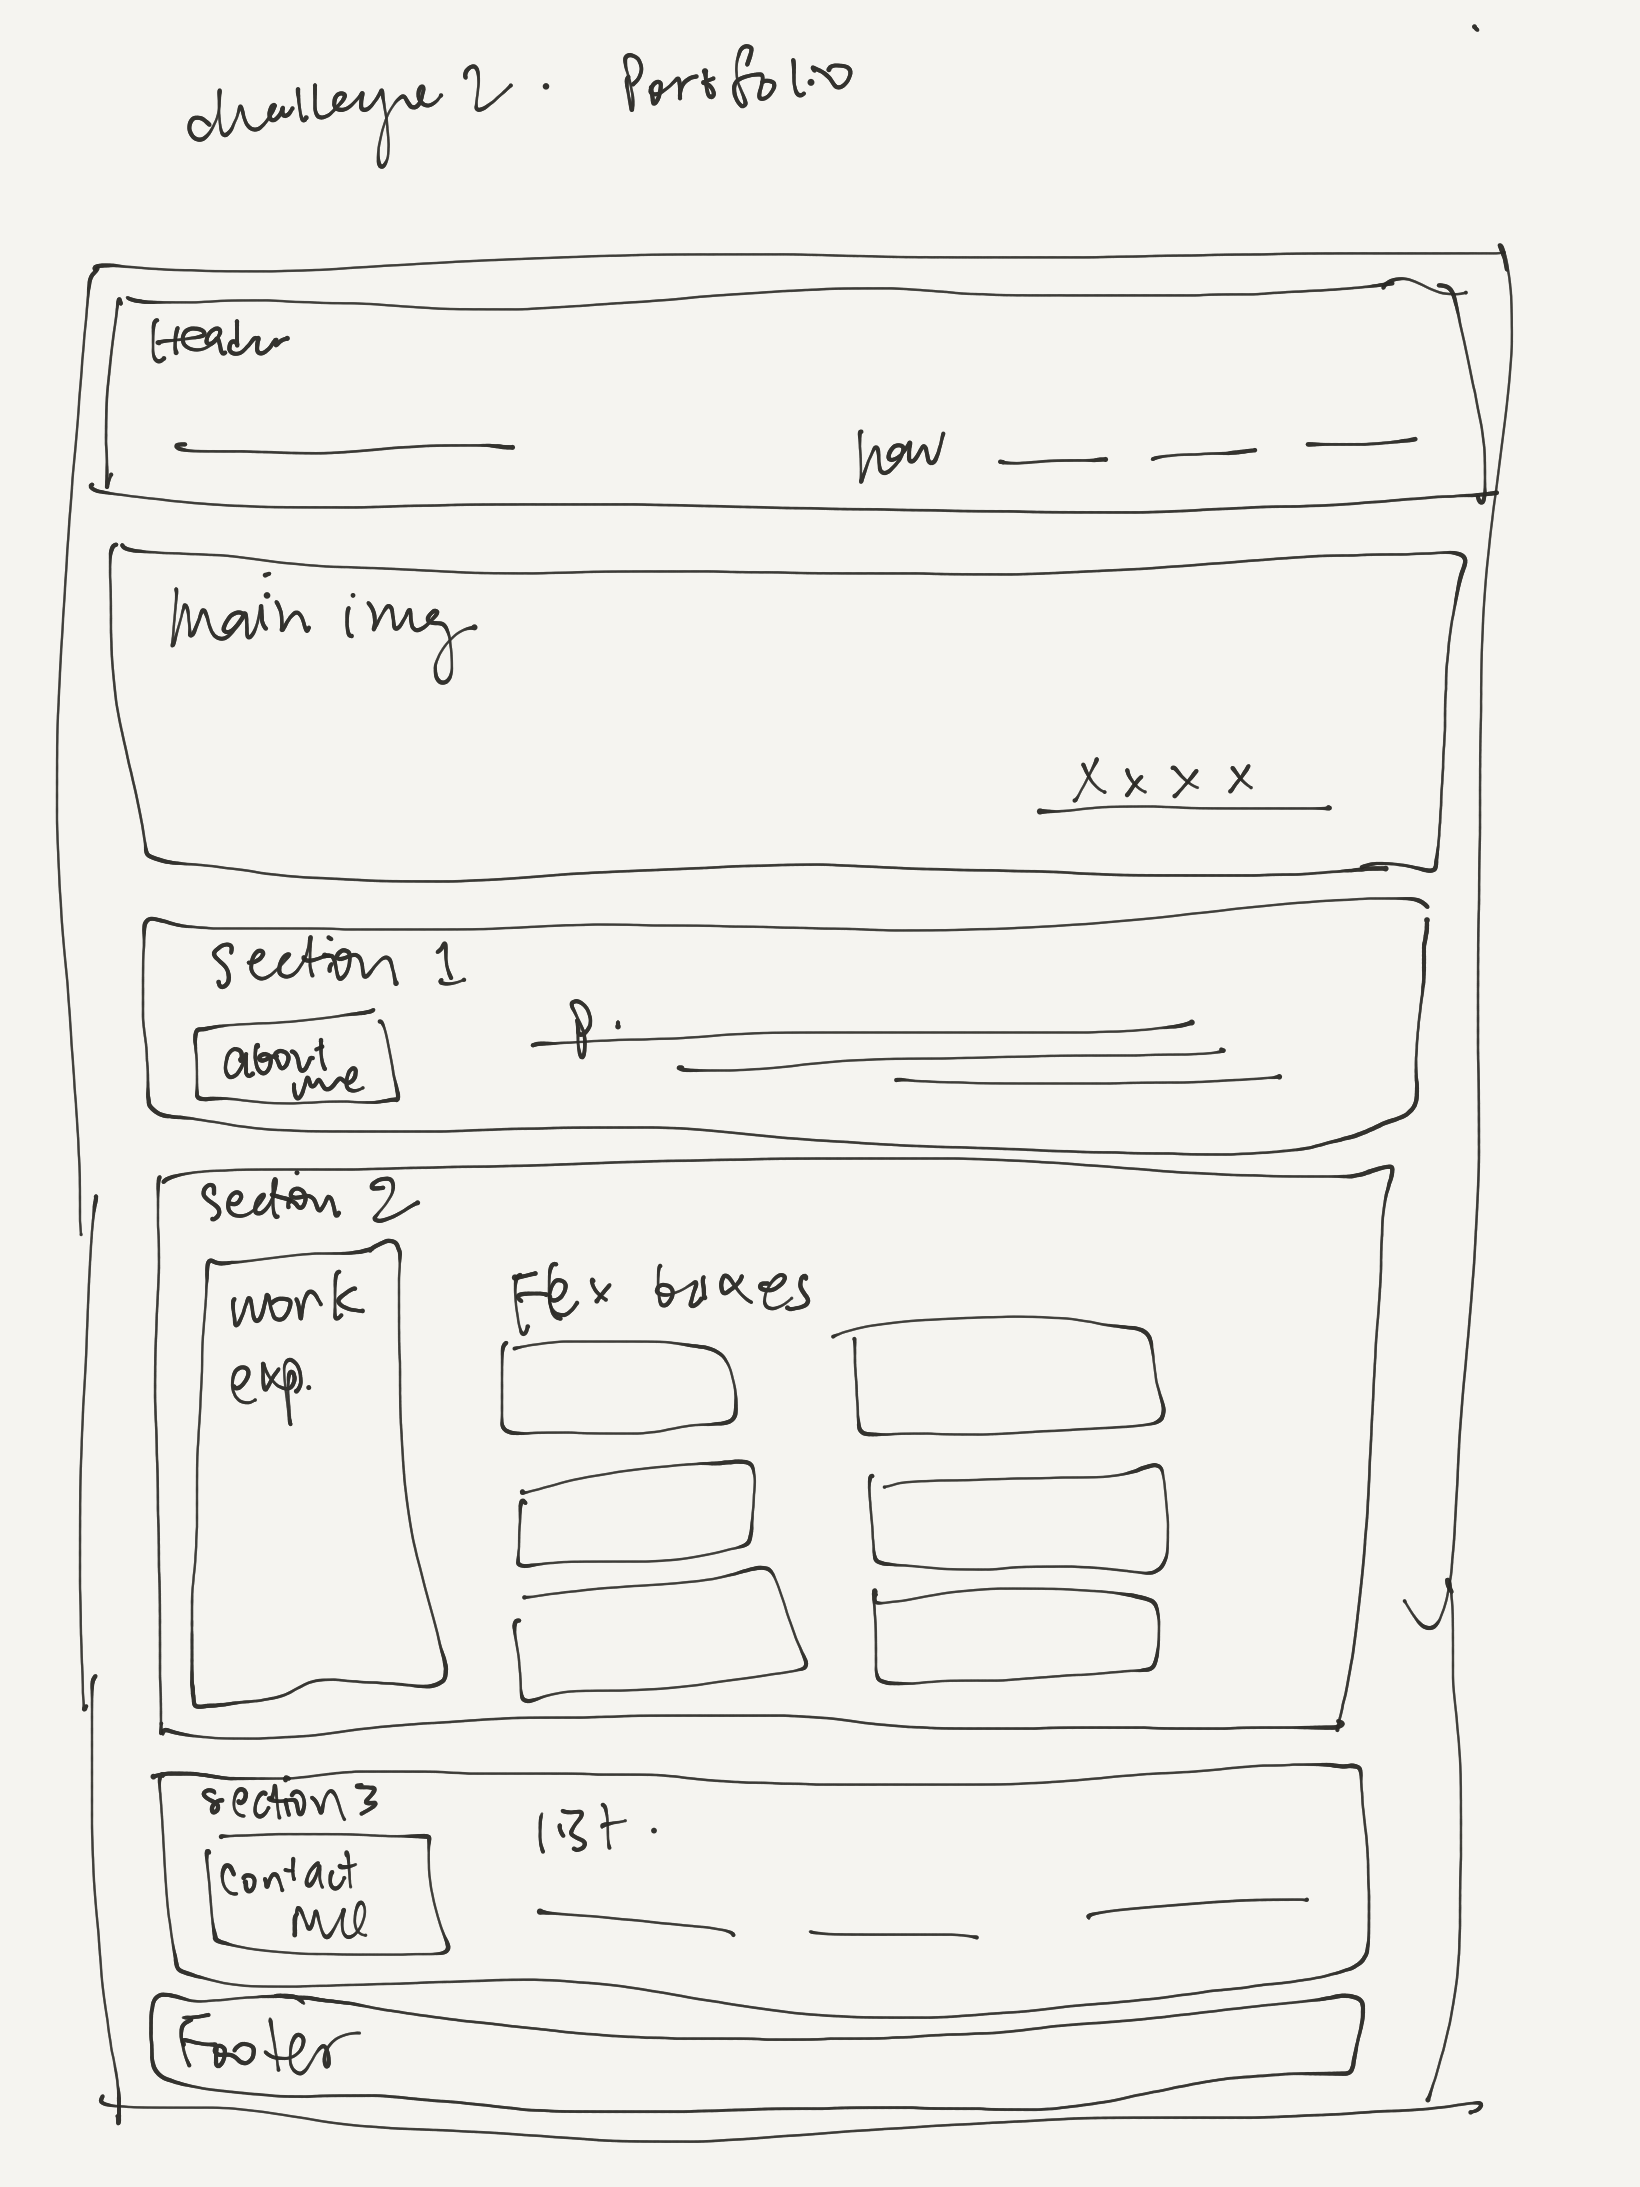 challenge 2. Portfolio
Header
nav
main img
x x x x
section 1
P.
about
me
section 2
work
exp.
Flex boxes
section 3
list.
contact
me
Footer